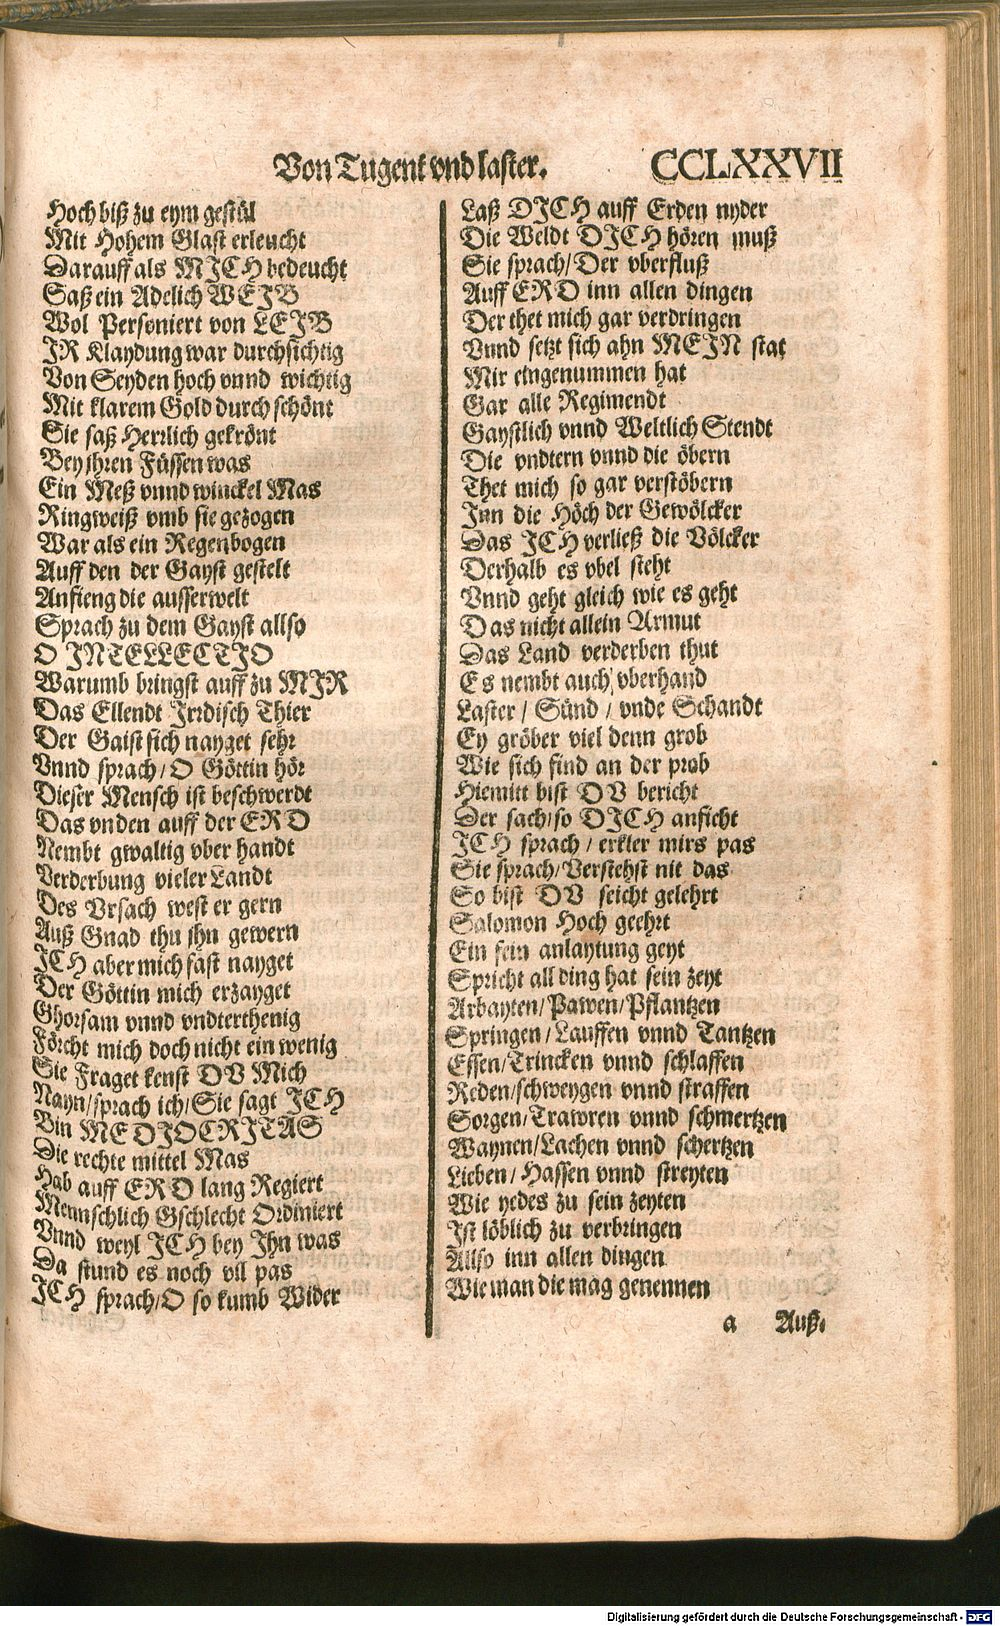 Von Tugent vnd laster. CCLXXVII
Hoch biß zu eym gestül
Mit Hohem Glast erleucht
Darauff als MICH bedeucht
Saß ein Adelich WEIB
Wol Personiert von LEIB
IR Klaydung war durchsichtig
Von Seyden hoch vnnd wichtig
Mit klarem Gold durch schönt
Sie saß Herrlich gekrönt
Bey jhren Füssen was
Ein Meß vnnd winckel Mas
Ringweiß vmb sie gezogen
War als ein Regenbogen
Auff den der Gayst gestelt
Anfieng die ausserwelt
Sprach zu dem Gayst allso
O INTELLECTIO
Warumb bringst auff zu MIR
Das Ellendt Irrdisch Thier
Der Gaist sich nayget sehr
Vnnd sprach/ O Göttin hör
Dieser Mensch ist beschwerdt
Das vnden auff der ERD
Nembt gwaltig vber handt
Verderbung vieler Landt
Des Vrsach west er gern
Auß Gnad thu jhn gewern
ICH aber mich fast nayget
Der Göttin mich erzayget
Ghorsam vnnd vndterthenig
Förcht mich doch nicht ein wenig
Sie Fraget kenst DV Mich
Nayn/sprach ich/Sie sagt ICH
Bin MEDIOCRITAS
Die rechte mittel Mas
Hab auff ERD lang Regiert
Mennschlich Gschlecht Ordiniert
Vnnd weyl ICH bey Ihn was
Da stund es noch vil pas
ICH sprach/O so kumb Wider
Laß DICH auff Erden nyder
Die Weldt DICH hören muß
Sie sprach/Der vberfluß
Auff ERD inn allen dingen
Der thet mich gar verdringen
Vnnd setzt sich ahn MEIN stat
Mir eingenummen hat
Gar alle Regimendt
Gaystlich vnnd Weltlich Stendt
Die vndtern vnnd die öbern
Thet mich so gar verstöbern
Inn die Höch der Gewölcker
Das ICH verließ die Völcker
Derhalb es vbel steht
Vnnd geht gleich wie es geht
Das nicht allein Armut
Das Land verderben thut
Es nembt auch vberhand
Laster/ Sünd/ vnde Schandt
Ey gröber viel denn grob
Wie sich find an der prob
Hiemitt bist DV bericht
Der sach/so DICH anficht
ICH sprach/ erkler mirs pas
Sie sprach/Verstehst nit das
So bist DV seicht gelehrt
Salomon Hoch geehrt
Ein fein anlaytung geyt
Spricht all ding hat sein zeyt
Arbayten/Pawen/Pflantzen
Springen/Lauffen vnnd Tantzen
Essen/Trincken vnnd schlaffen
Reden/schweygen vnnd straffen
Sorgen/Trawren vnnd schmertzen
Waynen/Lachen vnnd schertzen
Lieben/ Hassen vnnd streyten
Wie yedes zu sein zeyten
Ist löblich zu verbringen
Allso inn allen dingen
Wie man die mag genennen
a Auß.
Digitalisierung gefördert durch die Deutsche Forschungsgemeinschaft - DFG